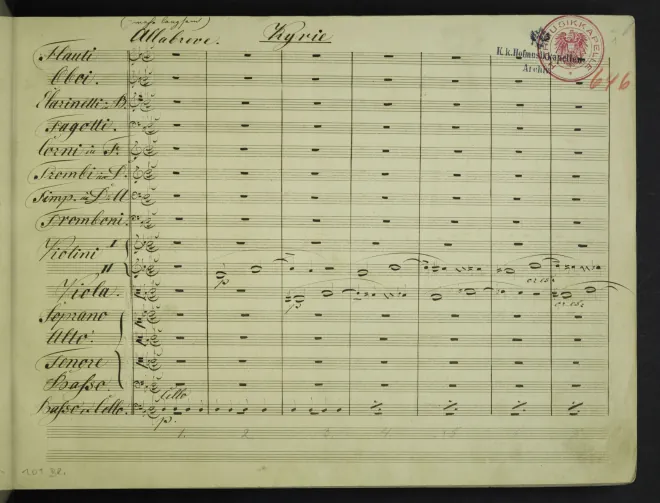 (mehr langsam)
Allabreve. Kyrie
HOFMUSIKKAPELLE
K.k.Hofmusikkapellen-
Archiv
646
Flauti
Oboi.
Clarinetti in B.
Fagotti.
Corni in F.
Trombi in D.
Timp. in D. A
Tromboni.
Violini I
II
Viola.
Soprano
Alto.
Tenore
Basso.
Basso e Cello.
Cello
p
p
p.
cresc
cresc
1. 2 3 4 5